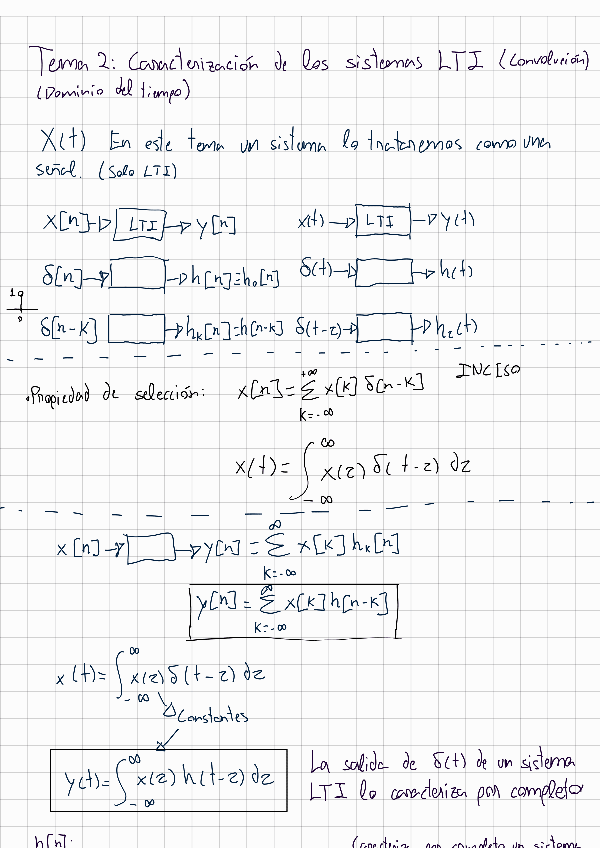 Tema 2: Caracterización de los sistemas LTI (Convolución)
(Dominio del tiempo)
X(t) En este tema un sistema lo trataremos como una
señal. (Solo LTI)
x[n] → LTI → y[n] x(t) → LTI → y(t)
δ[n] → → h[n]=h₀[n] δ(t) → → h(t)
δ[n-k] → hₖ[n]=h[n-k] δ(t-z) → → h_z(t)
.Propiedad de selección: x[n] = ∑_{k=-∞}^{+∞} x[k] δ[n-k] INCISO
x(t) = ∫_{-∞}^{∞} x(z) δ(t-z) dz
x[n] → → y[n] = ∑_{k=-∞}^{∞} x[k] hₖ[n]
y[n] = ∑_{k=-∞}^{∞} x[k] h[n-k]
x(t) = ∫_{-∞}^{∞} x(z) δ(t-z) dz
Constantes
y(t) = ∫_{-∞}^{∞} x(z) h(t-z) dz
La salida de δ(t) de un sistema
LTI lo caracteriza por completo
h[n]: